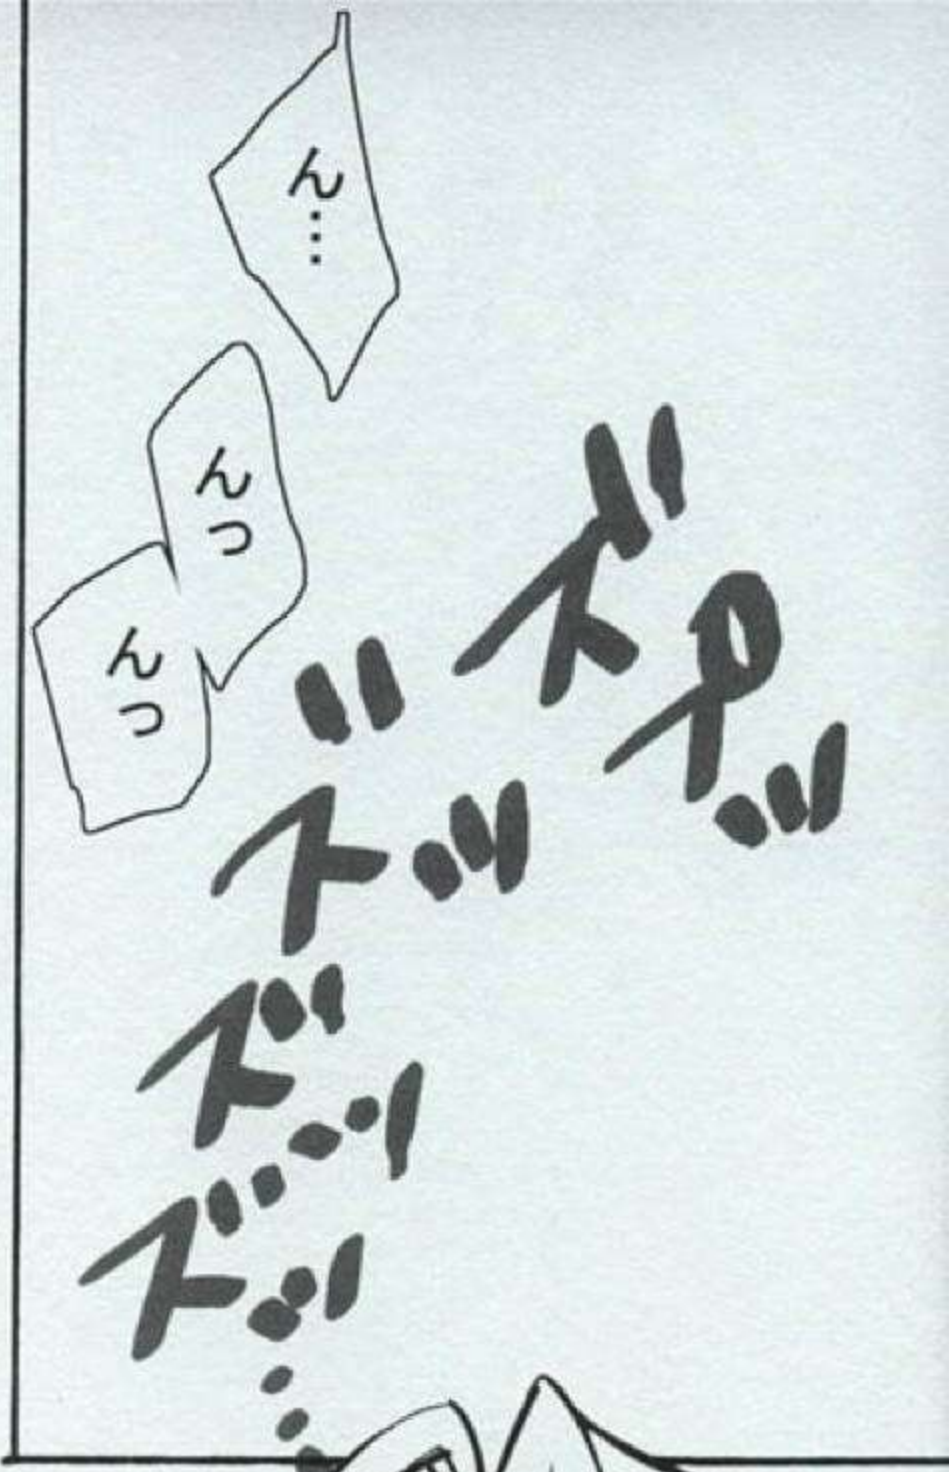 ん…
んっ
んっ
ズプッ
ズッ
ズッ
ズッ…